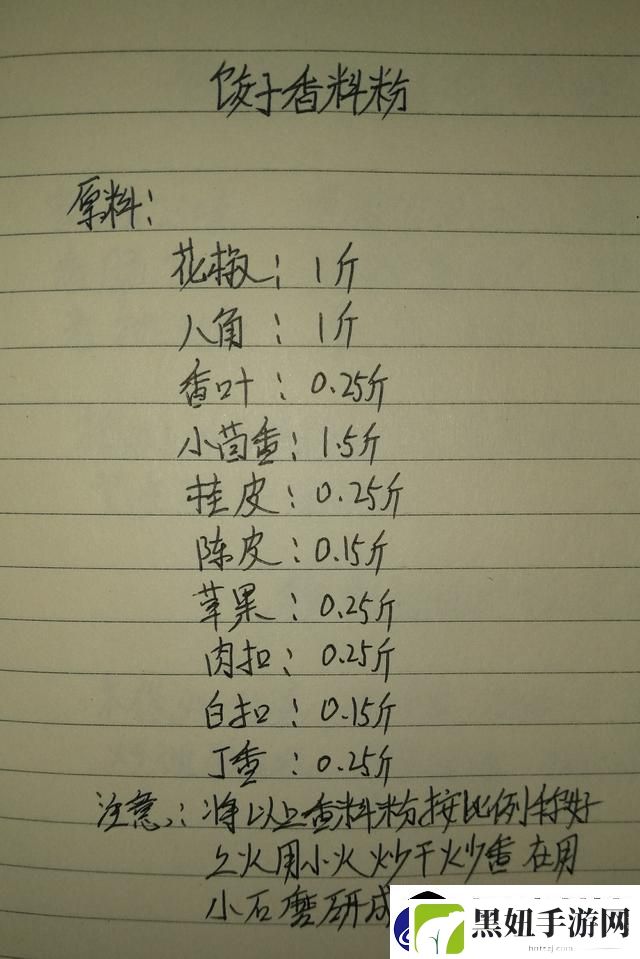 饺子香料粉
原料：
花椒：1斤
八角：1斤
香叶：0.25斤
小茴香：1.5斤
桂皮：0.25斤
陈皮：0.15斤
草果：0.25斤
肉扣：0.25斤
白扣：0.15斤
丁香：0.25斤
注意：将以上香料粉按比例称好
上火用小火炒干炒香在用
小石磨研成
黑妞手游网